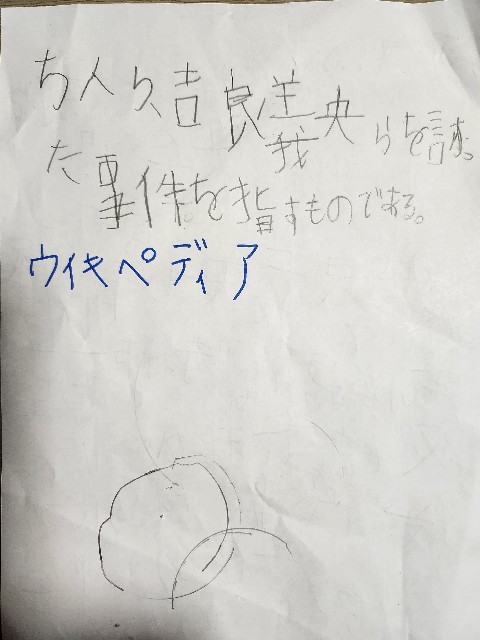 ち人ら、吉良義央らを討っ
た事件を指すものである。
ウィキペディア